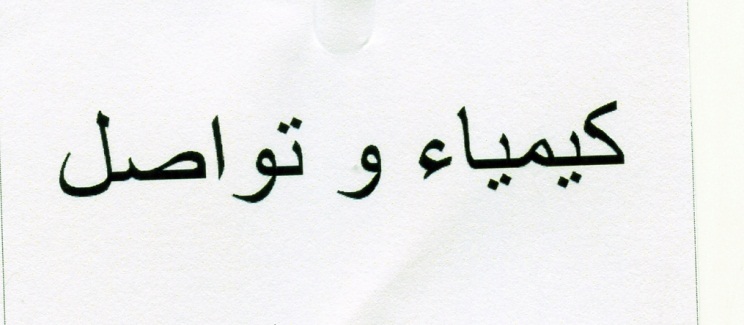 كيمياء و تواصل